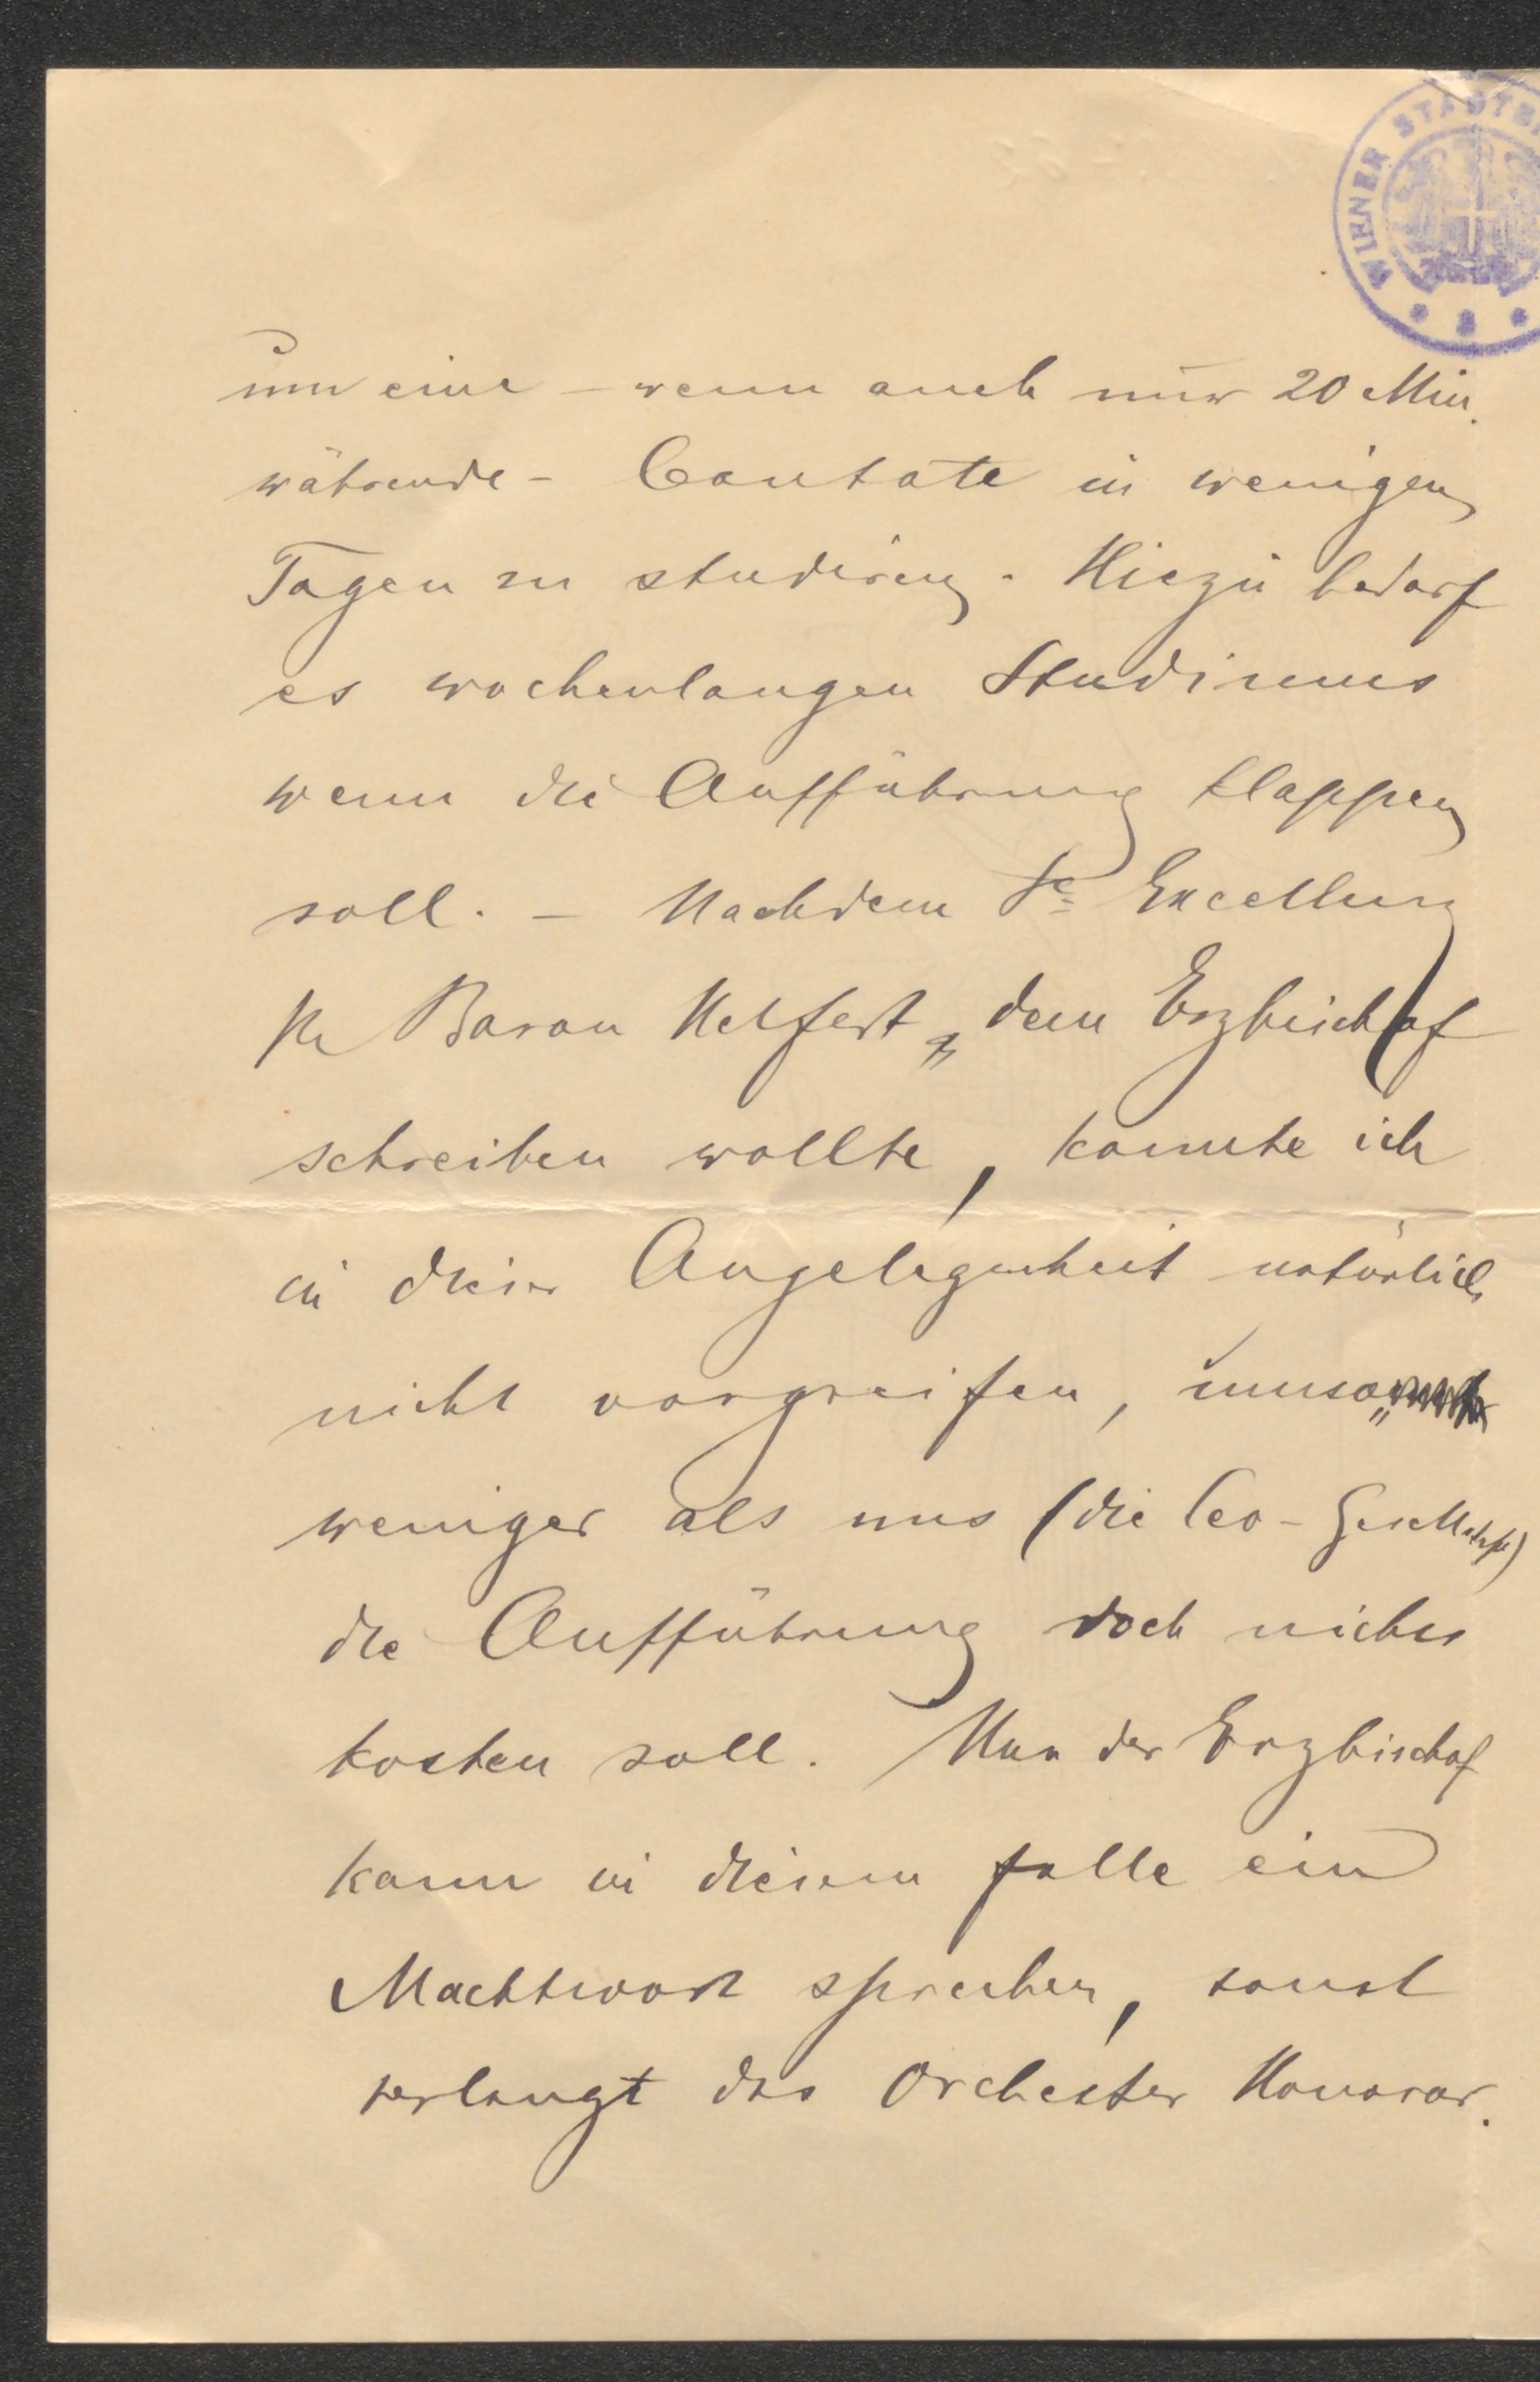 WIENER STADTB
um eine – wenn auch nur 20 Min.
währende – Cantate in wenigen
Tagen zu studiren. Hiezu bedarf
es wochenlangen Studiums
wenn die Aufführung klappen
soll. – Nachdem Se Excellenz
Hr Baron Helfert dem Erzbischof
schreiben wollte, konnte ich
in dieser Angelegenheit natürlich
nicht vorgreifen, umso
weniger als uns (die Leo-Gesellschaft)
die Aufführung doch nichts
kosten soll. Nur der Erzbischof
kann in diesem Falle ein
Machtwort sprechen, sonst
verlangt das Orchester Honorar.